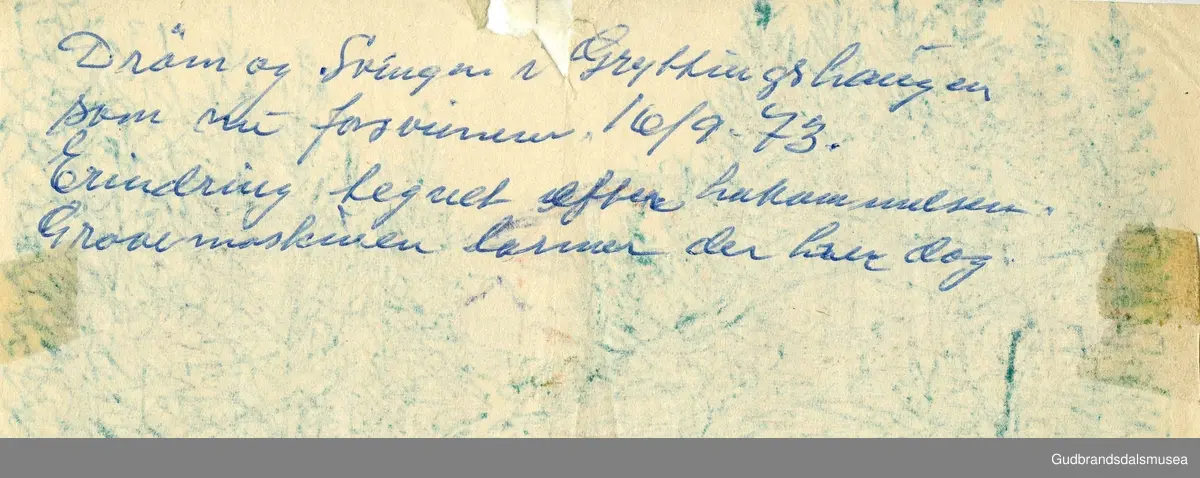 Dröm og Svingen i Gryttingshaugen
som nu forsvinner. 16/9-73.
Erindring tegnet efter hukommelsen.
Gravemaskinen larmer der hver dag.
Gudbrandsdalsmusea